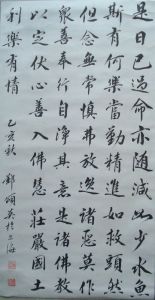 是日已過命亦随減如少水魚
斯有何樂當勤精進如救頭然
但念無常慎弗放逸諸惡莫作
衆善奉行自淨其意是諸佛教
以定伏心善入佛慧莊嚴國土
利樂有情
乙亥秋 鄧頌英於上海